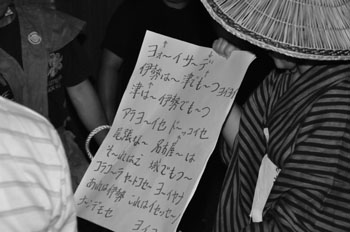 ヨォ〜イサ〜デ
伊勢は〜津でも〜つ ヨイヨイ
津は〜伊勢でも〜つ
アラヨ〜イセ ドーッコイセ
尾張は〜名古屋〜は
そ〜れはえ 城でもつ〜
コラコ〜ラ ヤートコセー ヨーイヤナ
あれは伊勢 これはイセッセ〜
ナンデモセ